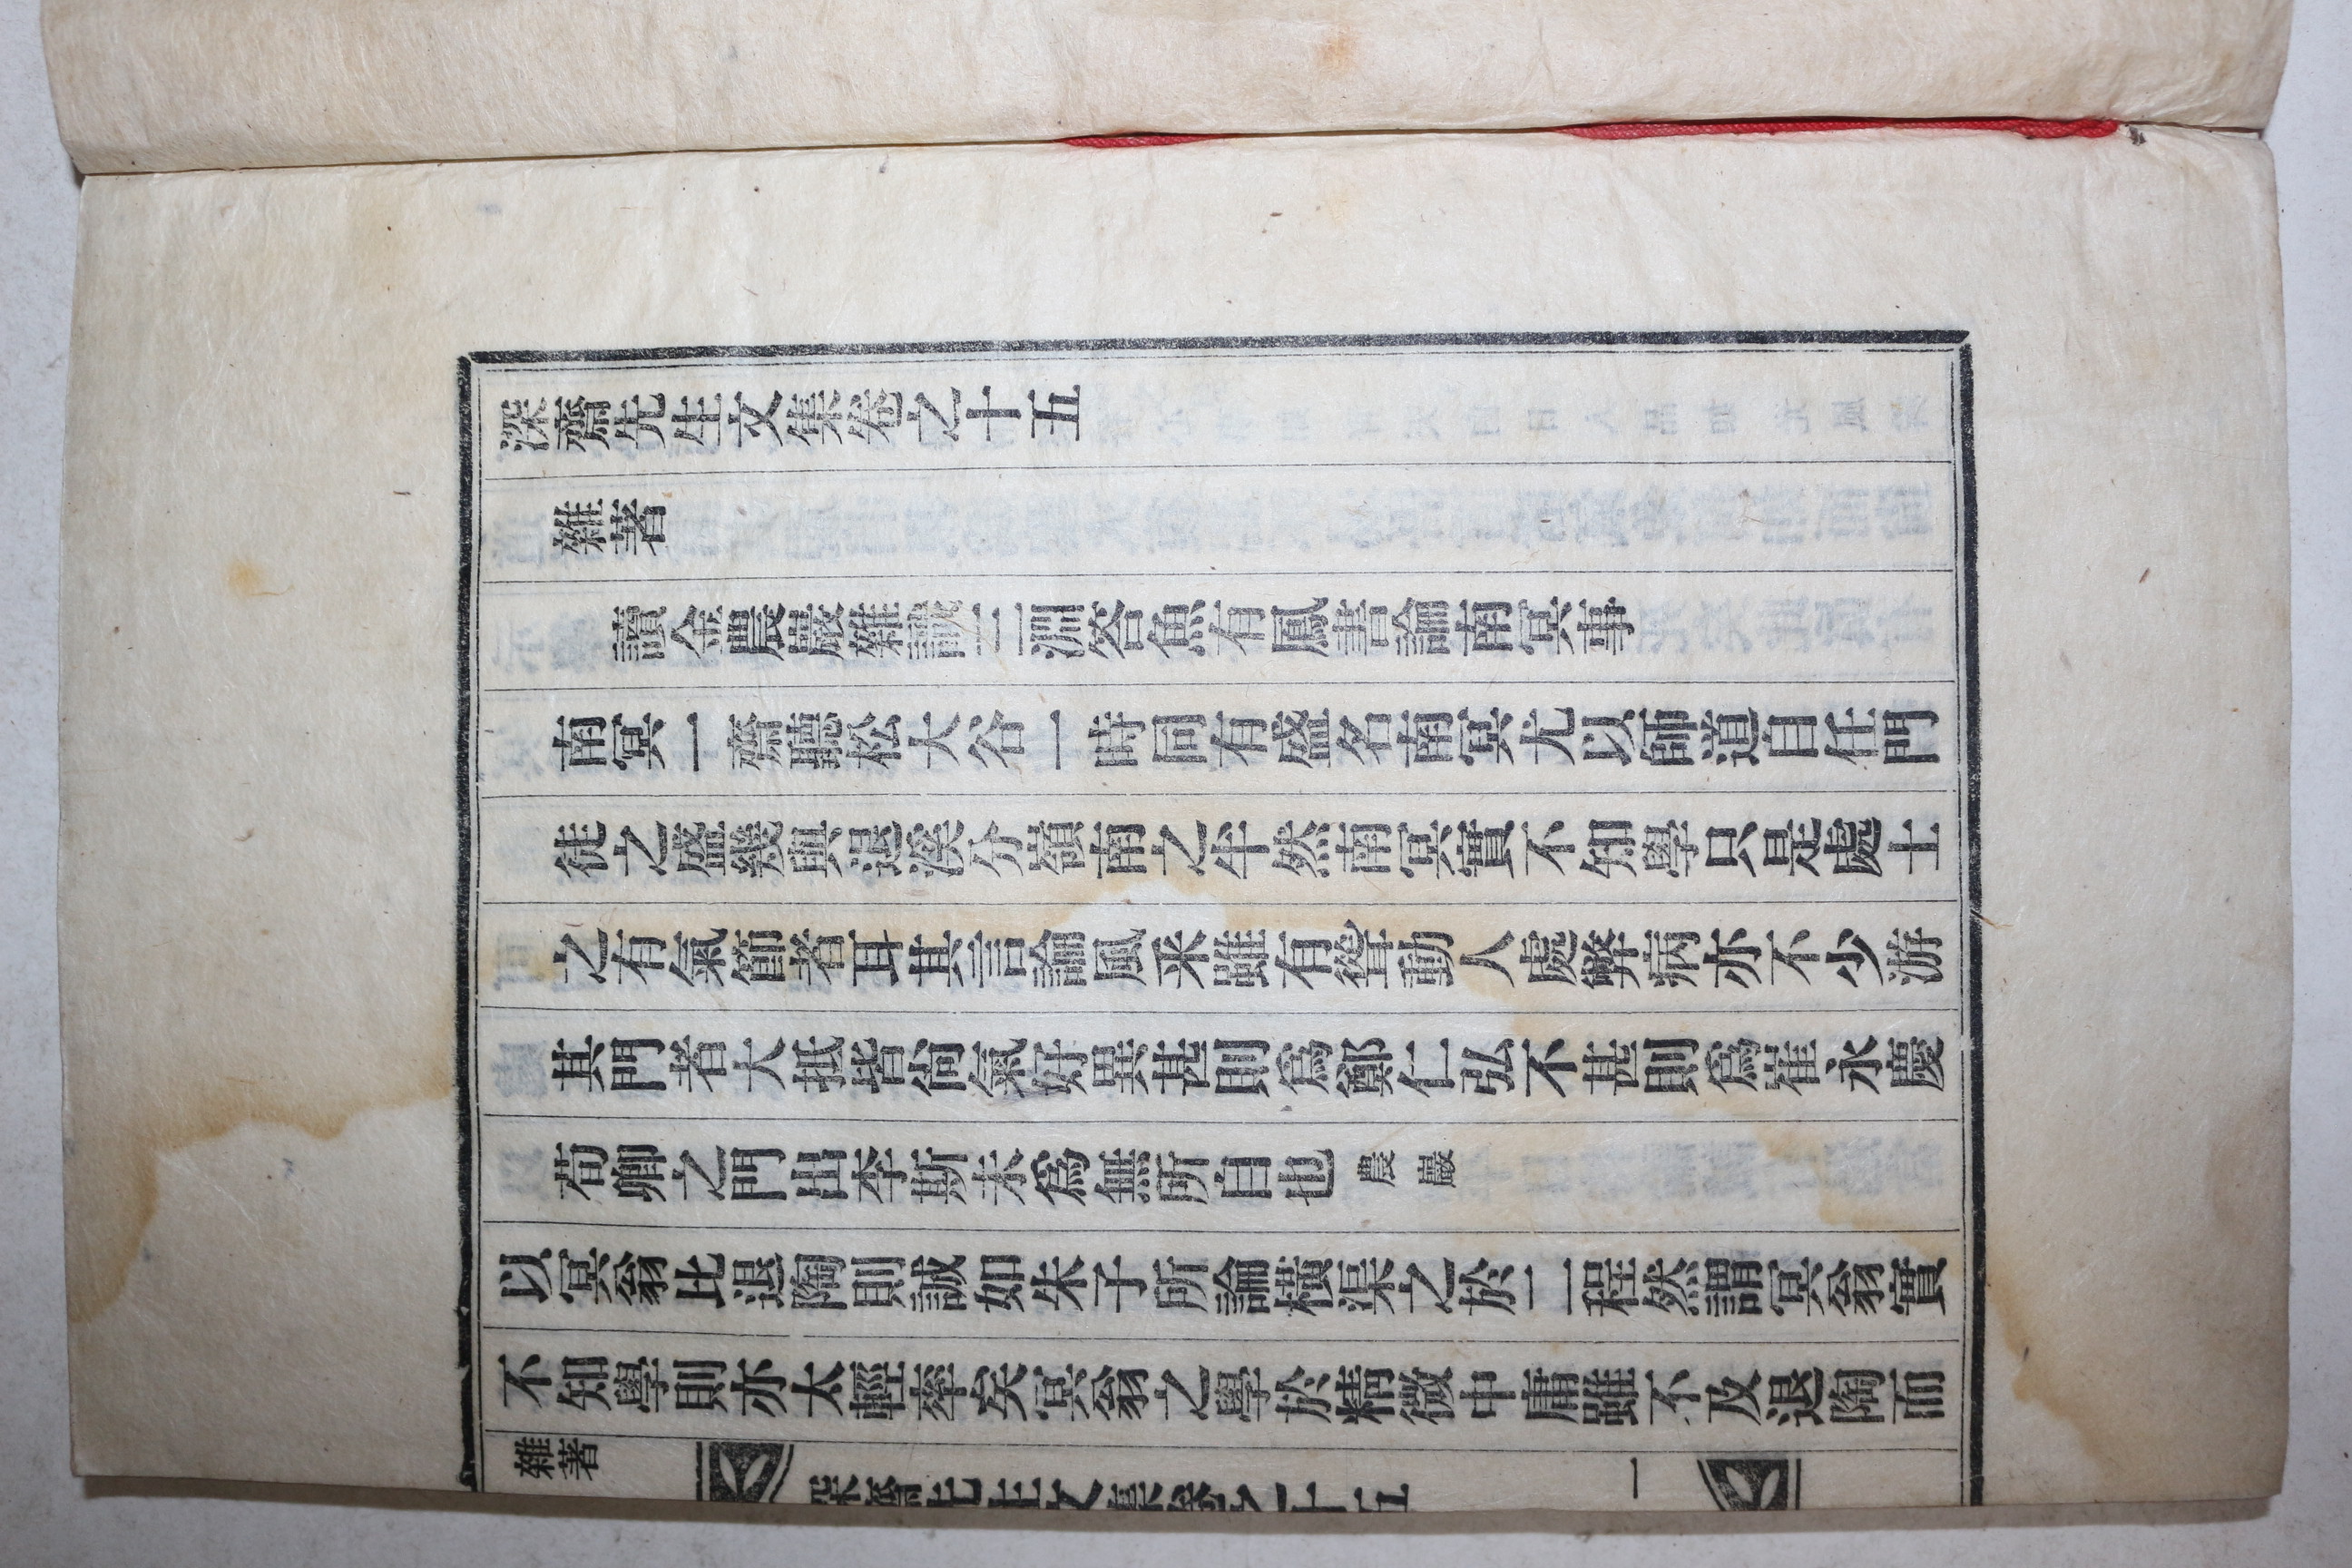 深齋先生文集卷之十五
雜著
讀金農巖雜識二洞答魚有鳳書論南冥事
南冥一齋聽松大谷一時同有盛名南冥尤以師道自任門
徒之盛幾與退溪分嶺南之半然南冥實不知學只是處士
之有氣節者耳其言論風采雖有聳動人處弊病亦不少游
其門者大抵皆尙氣好異甚則爲鄭仁弘不甚則爲崔永慶
荀卿之門出李斯未爲無所自也農巖
以冥翁比退陶則誠如朱子所論橫渠之於二程然謂冥翁實
不知學則亦太輕率矣冥翁之學於精微中庸雖不及退陶而
雜著
深齋先生文集卷之十五
一